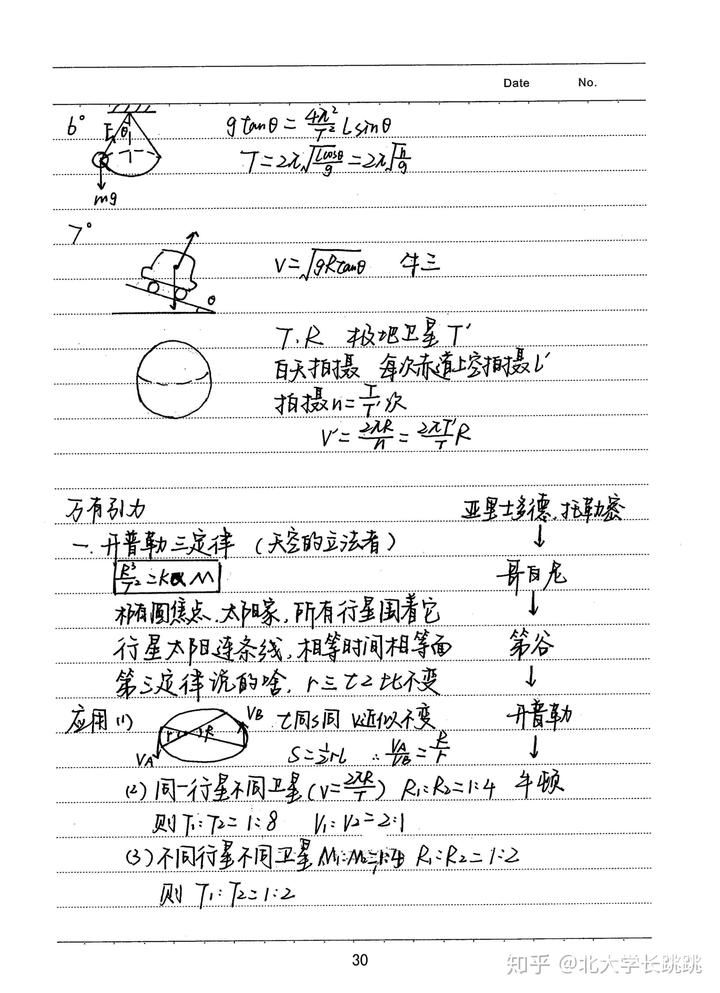 Date No.
6°
F θ
mg
g tanθ = 4π²/T² Lsinθ
T = 2π√(Lcosθ/g) = 2π√(h/g)
7°
θ
V = √(gRtanθ) 牛三
T、R 极地卫星T'
白天拍摄 每次赤道上空拍摄L'
拍摄n = T/T' 次
V' = 2πR/n = 2πT'/T R
万有引力
亚里士多德、托勒密
↓
哥白尼
↓
第谷
↓
开普勒
↓
牛顿
一、开普勒三定律 (天空的立法者)
R³/T² = k M
椭圆焦点、太阳家，所有行星围着它
行星太阳连条线，相等时间相等面
第三定律说的啥，r三t2比不变
应用(1)
VA r R VB
t同S同 V近似不变
S = 1/2 rL ∴ VA/VB = R/r
(2) 同一行星不同卫星 (V = 2πR/T) R₁:R₂ = 1:4
则T₁:T₂ = 1:8 V₁:V₂ = 2:1
(3) 不同行星不同卫星 M₁:M₂ = R₁:R₂ = 1:2
则 T₁:T₂ = 1:2
30
知乎 @北大学长跳跳